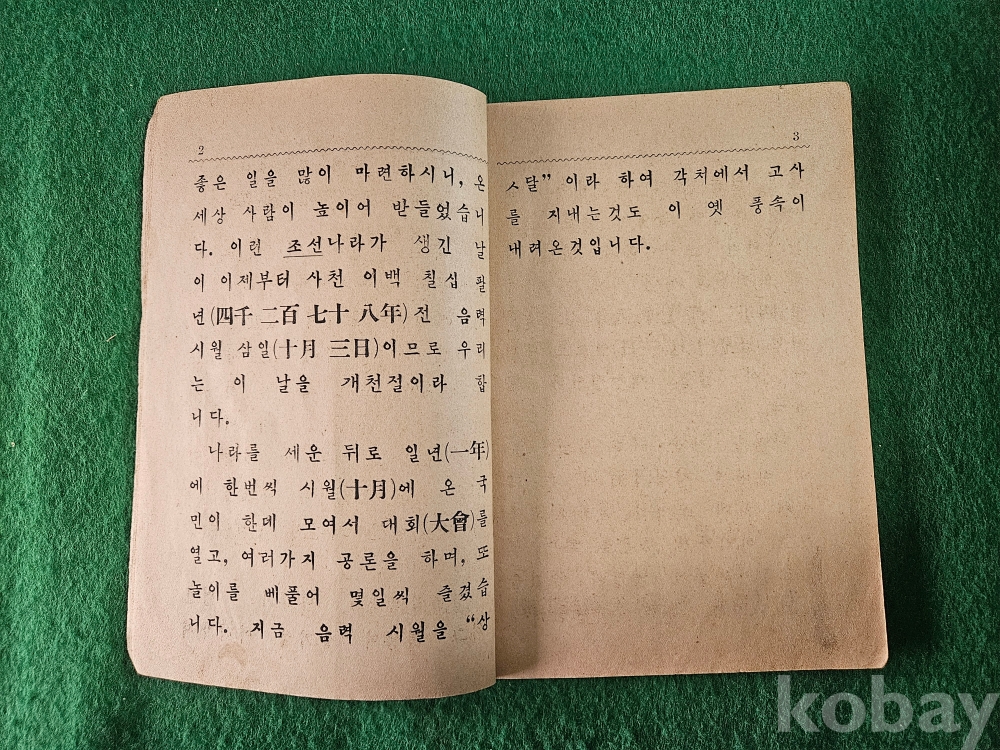 2
좋은 일을 많이 마련하시니, 온
세상 사람이 높이어 받들었습니
다. 이런 조선나라가 생긴 날
이 이제부터 사천 이백 칠십 팔
년(四千 二百 七十 八年)전 음력
시월 삼일(十月 三日)이므로 우리
는 이 날을 개천절이라 합
니다.
나라를 세운 뒤로 일년(一年)
에 한번씩 시월(十月)에 온 국
민이 한데 모여서 대회(大會)를
열고, 여러가지 공론을 하며, 또
놀이를 베풀어 몇일씩 즐겼습
니다. 지금 음력 시월을 “상
3
ㅅ달”이라 하여 각처에서 고사
를 지내는것도 이 옛 풍속이
내려온것입니다.
kobay